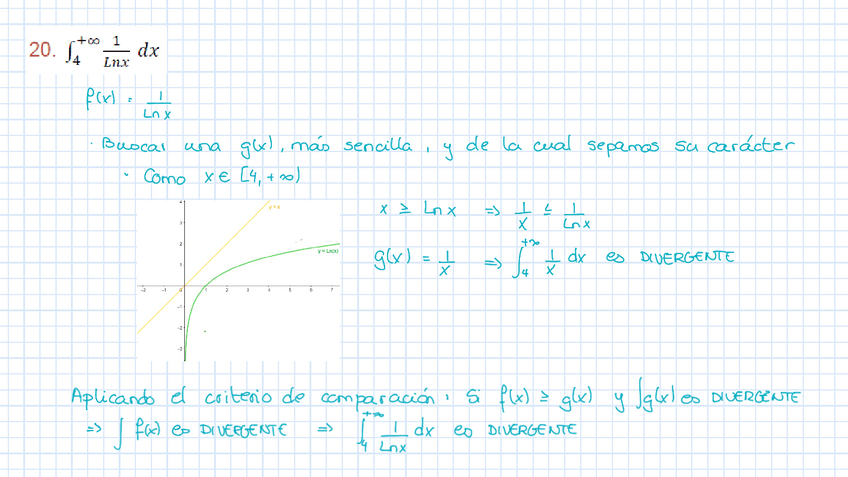 20. ∫₄^{+∞} 1/Lnx dx
f(x) = 1/Ln x
· Buscar una g(x), más sencilla, y de la cual sepamos su carácter
· Como x ∈ [4, +∞)
x ≥ Ln x ⇒ 1/x ≤ 1/Ln x
g(x) = 1/x ⇒ ∫₄^{+∞} 1/x dx es DIVERGENTE
y = x
y = Ln(x)
4
3
2
1
-2 -1 0 1 2 3 4 5 6 7
-1
-2
-3
Aplicando el criterio de comparación: Si f(x) ≥ g(x) y ∫g(x) es DIVERGENTE
⇒ ∫ f(x) es DIVERGENTE ⇒ ∫₄^{+∞} 1/Lnx dx es DIVERGENTE